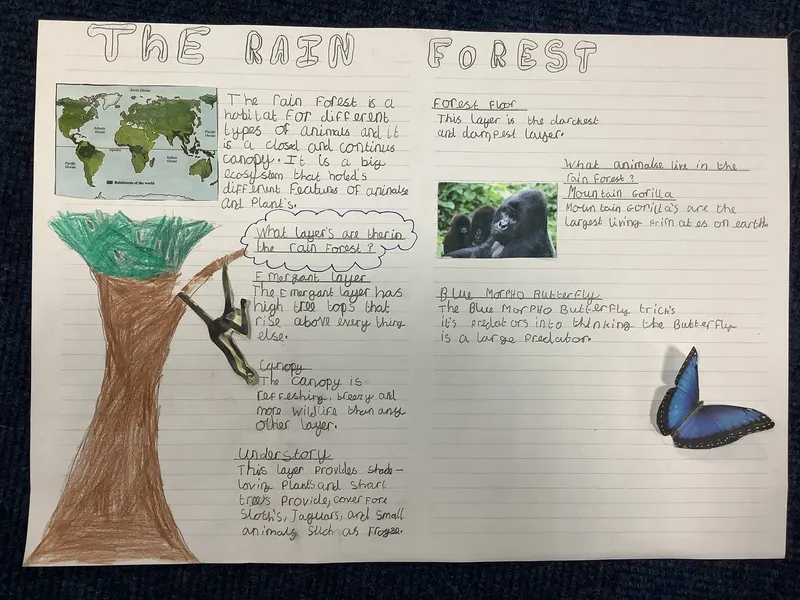 THE RAIN FOREST
Arctic Ocean
Atlantic Ocean
Pacific Ocean
Pacific Ocean
Indian Ocean
Equator
Rainforests of the world
The rain Forest is a
habitat For different
types of animals and it
is a closed and continus
canopy. It is a big
ecosystem that holed's
different Featurs of animalse
and Plant's.
What layer's are ther in
the rain Forest?
Emergant layer
The Emergant layer has
high tree tops that
rise above every thing
else.
Canopy
The Canopy is
reFFeshing, breezy and
more wildlife than any
other layer.
Understory
This layer provides shade-
loving Plants and short
trees Provide, cover Fore
Sloth's, Jaguars, and small
animals such as Frogze.
Forest Floor
This layer is the darckest
and dampest layer.
What animalse live in the
rain Forest?
Mountain Gorilla
Mountain Gorilla's are the
largest living primates on earth.
Blue MorPHO Butterfly
The Blue MorPHO ButterFly trick's
it's Predators into thinking the ButterFly
is a large Predator.